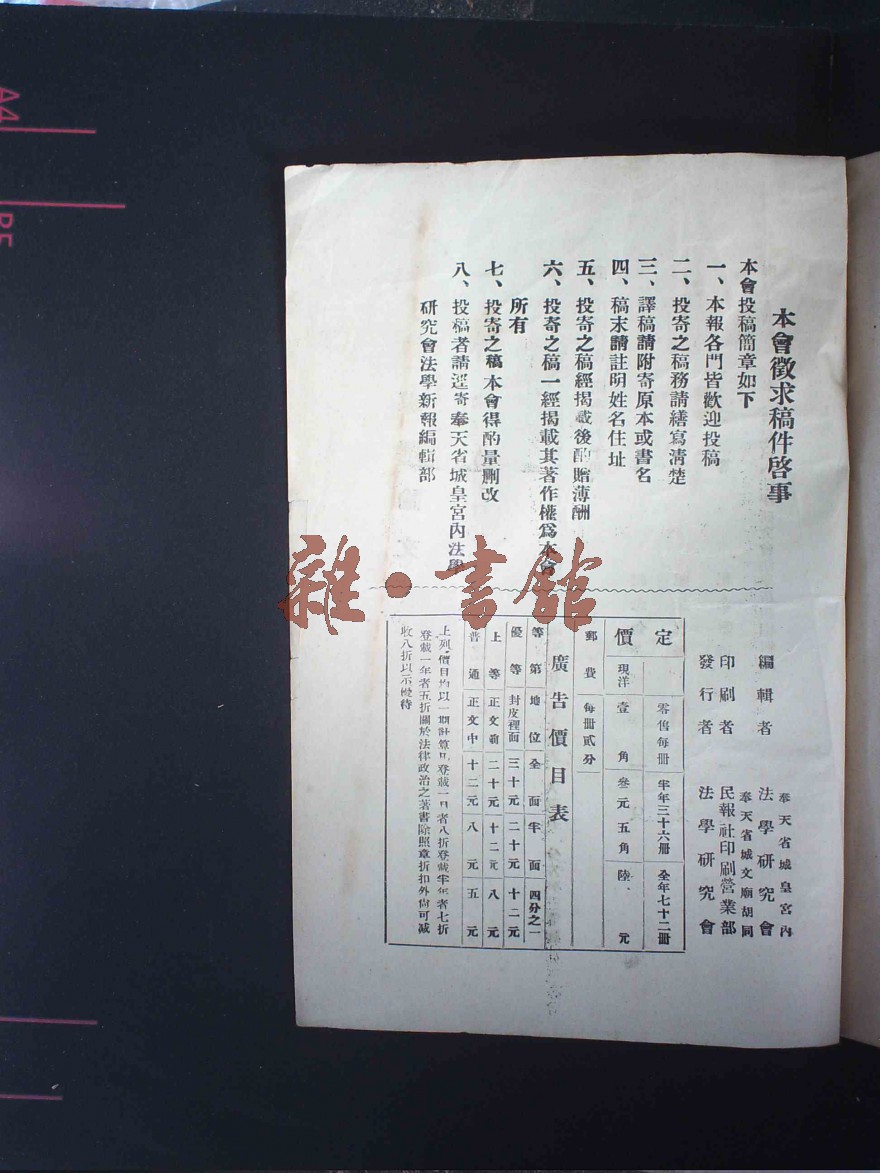 本會徵求稿件啓事
本會投稿簡章如下
一、本報各門皆歡迎投稿
二、投寄之稿務請繕寫清楚
三、譯稿請附寄原本或書名
四、稿末請註明姓名住址
五、投寄之稿經揭載後酌贈薄酬
六、投寄之稿一經揭載其著作權爲本會
所有
七、投寄之稿本會得酌量删改
八、投稿者請逕寄奉天省城皇宮內法學
研究會法學新報編輯部
奉天省城皇宮內
編輯者 法學研究會
奉天省城文廟胡同
印刷者 民報社印刷營業部
發行者 法學研究會
定價
零售每冊 半年三十六冊 全年七十二冊
現洋 壹角 叁元五角 陸元
郵費 每冊貳分
廣告價目表
等第 地位 全面 半面 四分之一
優等 封皮裡面 三十元 二十元 十二元
上等 正文前 二十元 十二元 八元
普通 正文中 十二元 八元 五元
上列價目均以一期計算凡登載一月者八折登載半年者七折
登載一年者五折關於法律政治之著書除照章折扣外尙可減
收八折以示優待
雜·書館
A4
B5